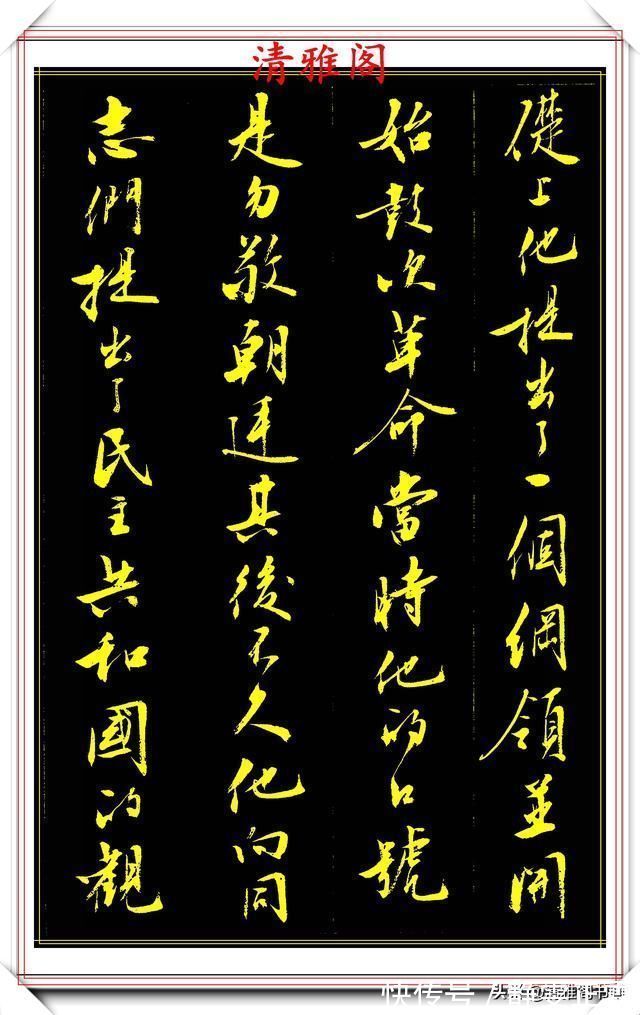 清雅阁
礎上他提出了一個綱領並開
始鼓吹革命當時他的口號
是勿敬朝廷其後不久他向同
志們提出了民主共和國的觀
快传号